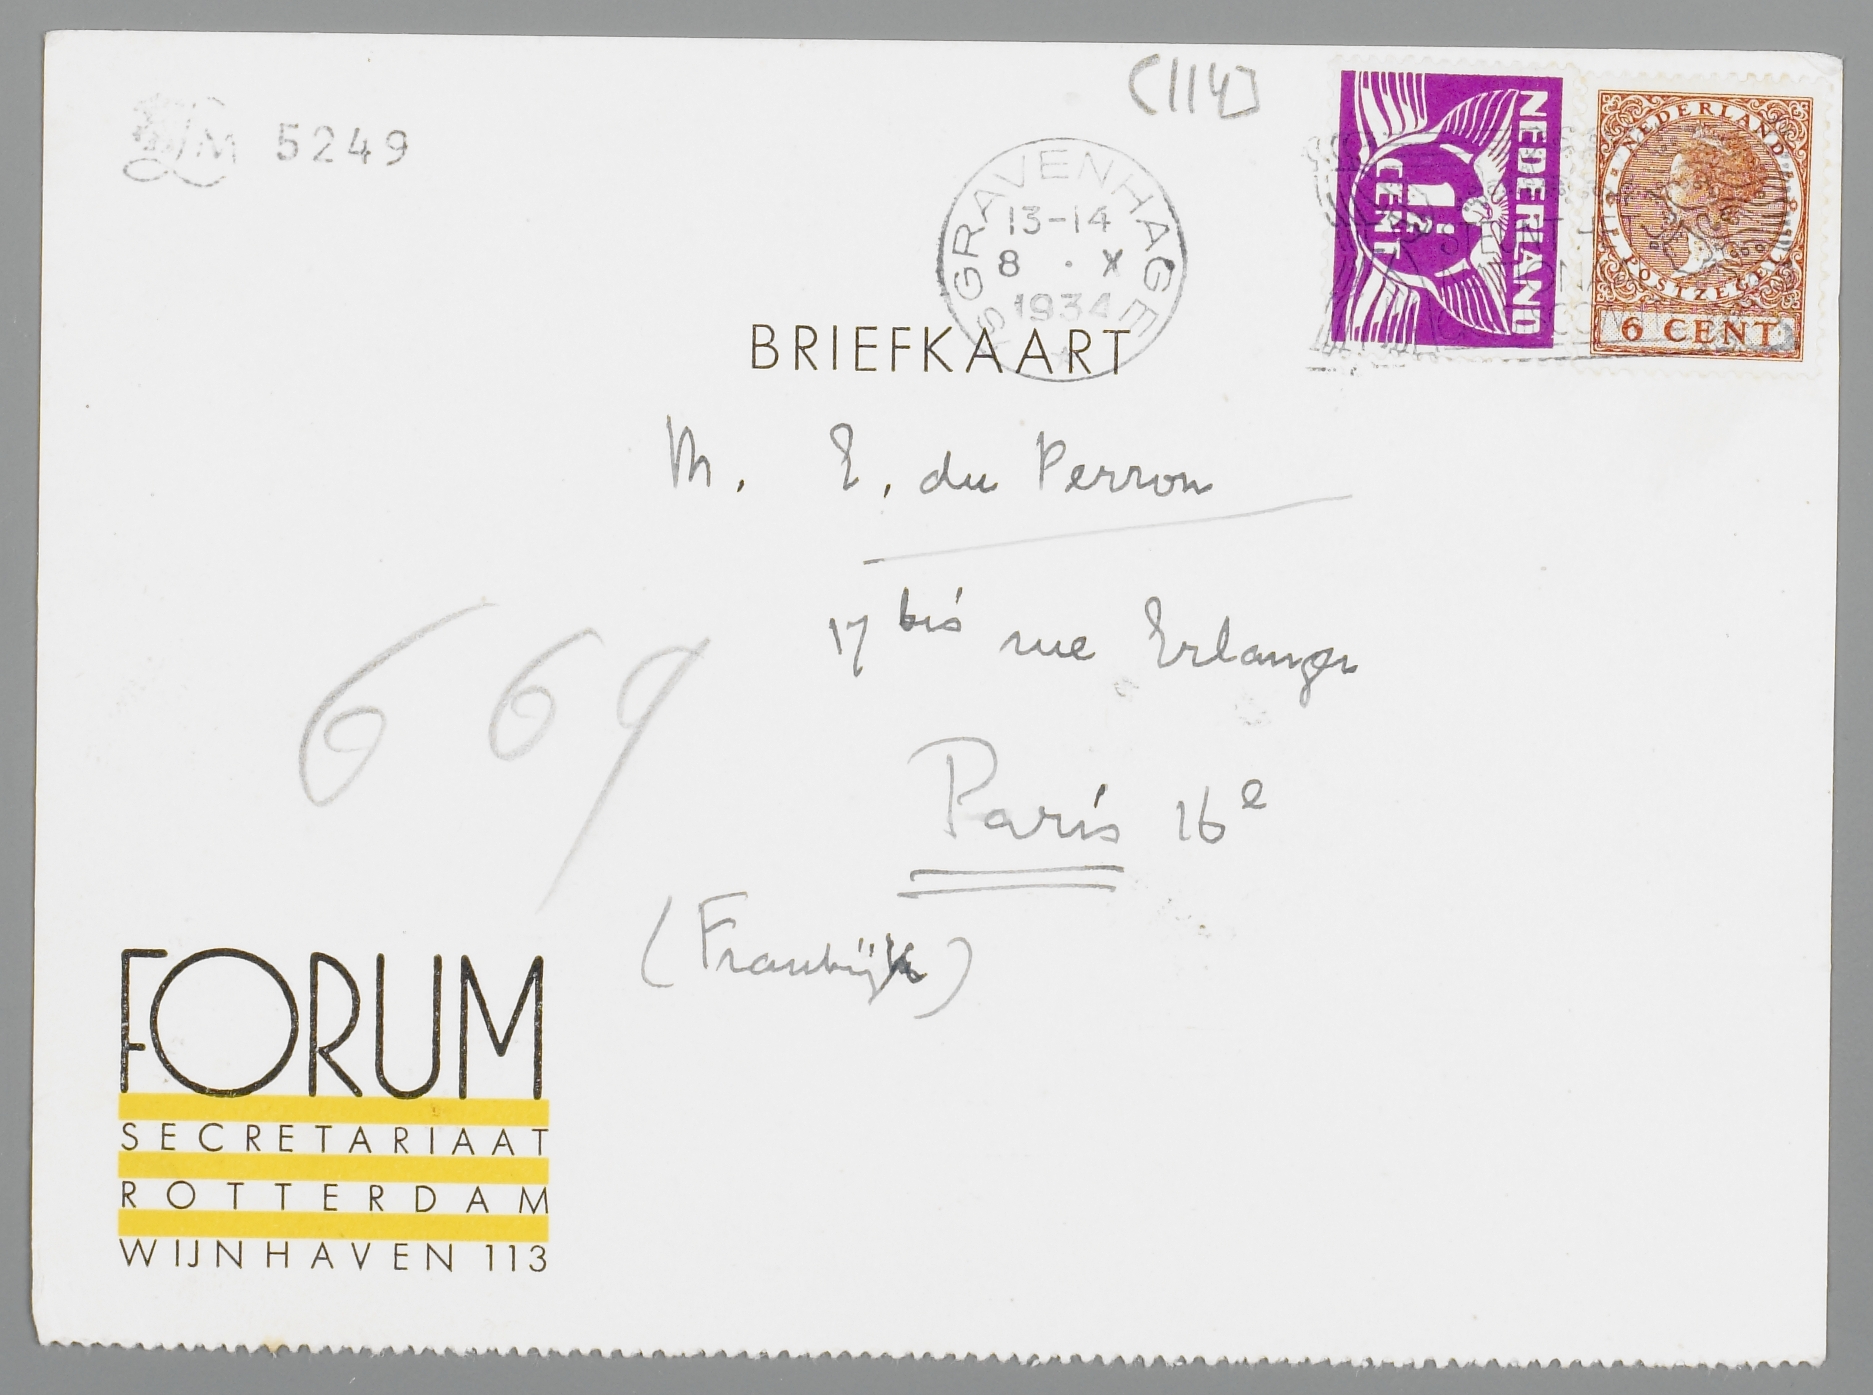 (114)
LM 5249
'SGRAVENHAGE
13-14
8 . X
1934
NEDERLAND
1½ CENT
NEDERLAND
POSTZEGEL
6 CENT
BRIEFKAART
M. E. du Perron
17 bis rue Erlanger
669
Paris 16e
(Frankrijk)
FORUM
SECRETARIAAT
ROTTERDAM
WIJNHAVEN 113